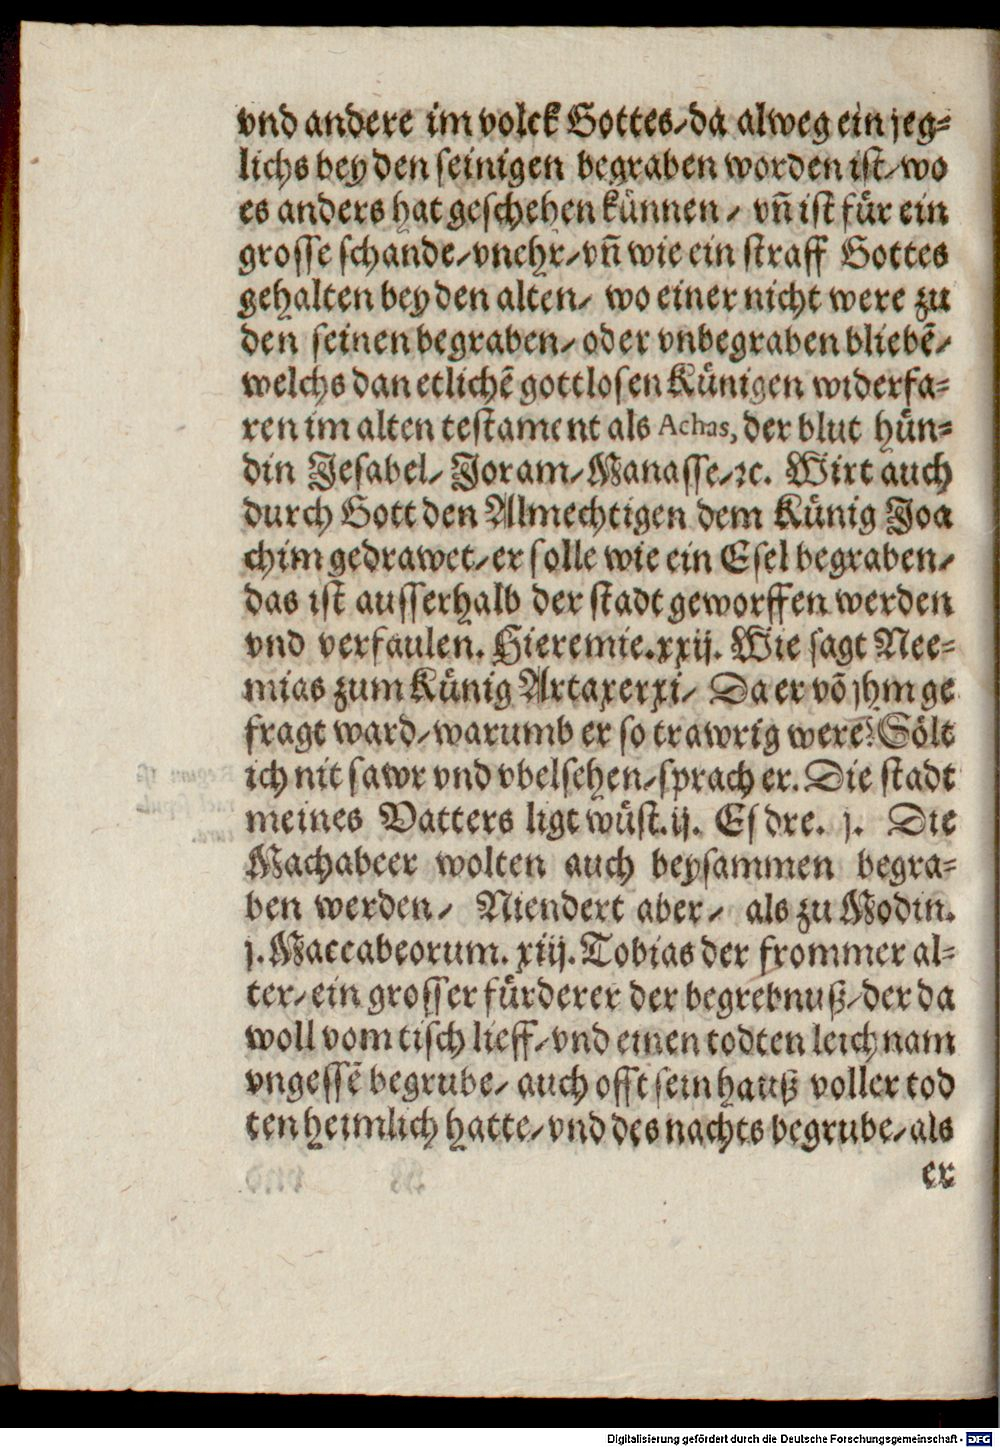 vnd andere im volck Gottes/da alweg ein jeg-
lichs bey den seinigen begraben worden ist/wo
es anders hat geschehen künnen/ vñ ist für ein
grosse schande/vnehr/vñ wie ein straff Gottes
gehalten bey den alten/ wo einer nicht were zu
den seinen begraben/oder vnbegraben bliebẽ/
welchs dan etlichẽ gottlosen Künigen widerfa-
ren im alten testament als Achas, der blut hün-
din Jesabel/ Joram/Manasse/ꝛc. Wirt auch
durch Gott den Almechtigen dem Künig Joa
chim gedrawet/er solle wie ein Esel begraben/
das ist ausserhalb der stadt geworffen werden
vnd verfaulen. Hieremie.xxij. Wie sagt Nee-
mias zum Künig Artaxerxi/ Da er võ jhm ge
fragt ward/warumb er so trawrig were? Sölt
ich nit sawr vnd vbelsehen/sprach er. Die stadt
meines Vatters ligt wüst.ij. Esdre. j. Die
Machabeer wolten auch beysammen begra-
ben werden/ Niendert aber/ als zu Modin.
j.Maccabeorum. xiij. Tobias der frommer al-
ter/ein grosser fürderer der begrebnuß/der da
woll vom tisch lieff/vnd einen todten leichnam
vngessẽ begrube/ auch offt sein hauß voller tod
ten heimlich hatte/vnd des nachts begrube/als
er
Digitalisierung gefördert durch die Deutsche Forschungsgemeinschaft - DFG